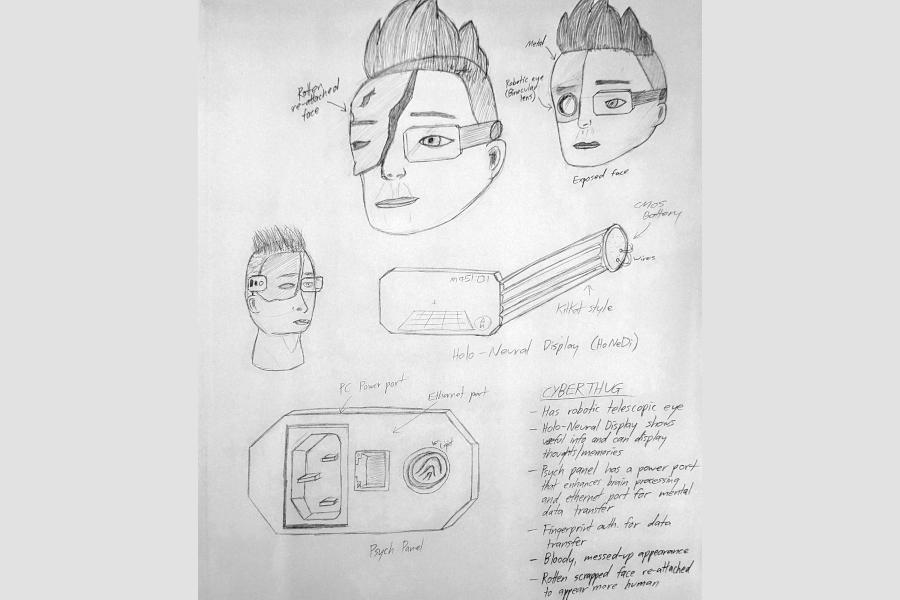 Rotten
re-attached
face
Metal
Robotic eye
(Binocular
lens)
Exposed face
CMOS
Battery
wires
KitKat style
Holo-Neural Display (HoNeDi)
PC Power port
Ethernet port
Light
Psych Panel
CYBERTHUG
- Has robotic telescopic eye
- Holo-Neural Display shows
useful info and can display
thoughts/memories
- Psych panel has a power port
that enhances brain processing
and ethernet port for mental
data transfer
- Fingerprint auth. for data
transfer
- Bloody, messed-up appearance
- Rotten scrapped face re-attached
to appear more human